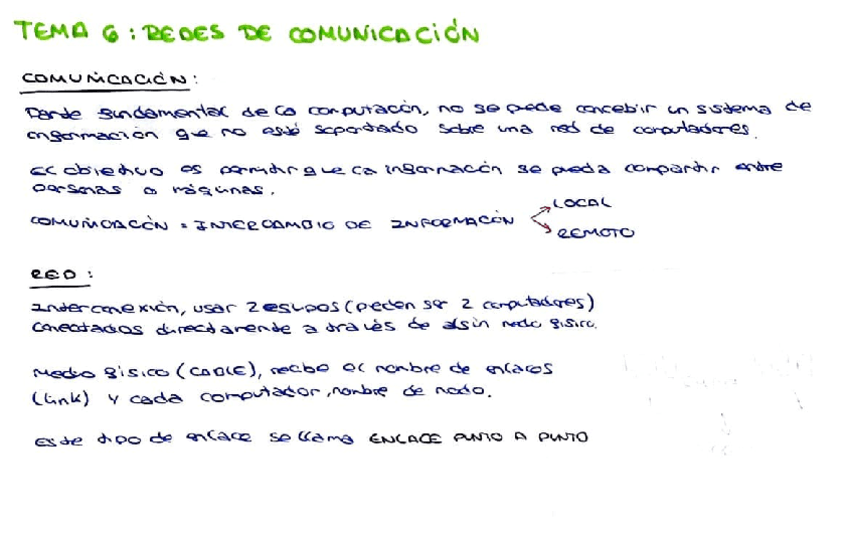 TEMA 6: REDES DE COMUNICACIÓN
COMUNICACIÓN:
Parte fundamental de la computación, no se puede concebir un sistema de
información que no esté soportado sobre una red de computadores.
El objetivo es permitir que la información se pueda compartir entre
personas o máquinas.
COMUNICACIÓN = INTERCAMBIO DE INFORMACIÓN
LOCAL
REMOTO
RED:
Interconexión, usar 2 equipos (pueden ser 2 computadores)
conectados directamente a través de algún medio físico.
Medio físico (CABLE), recibe el nombre de enlaces
(link) y cada computador, nombre de nodo.
Este tipo de enlace se llama ENLACE PUNTO A PUNTO